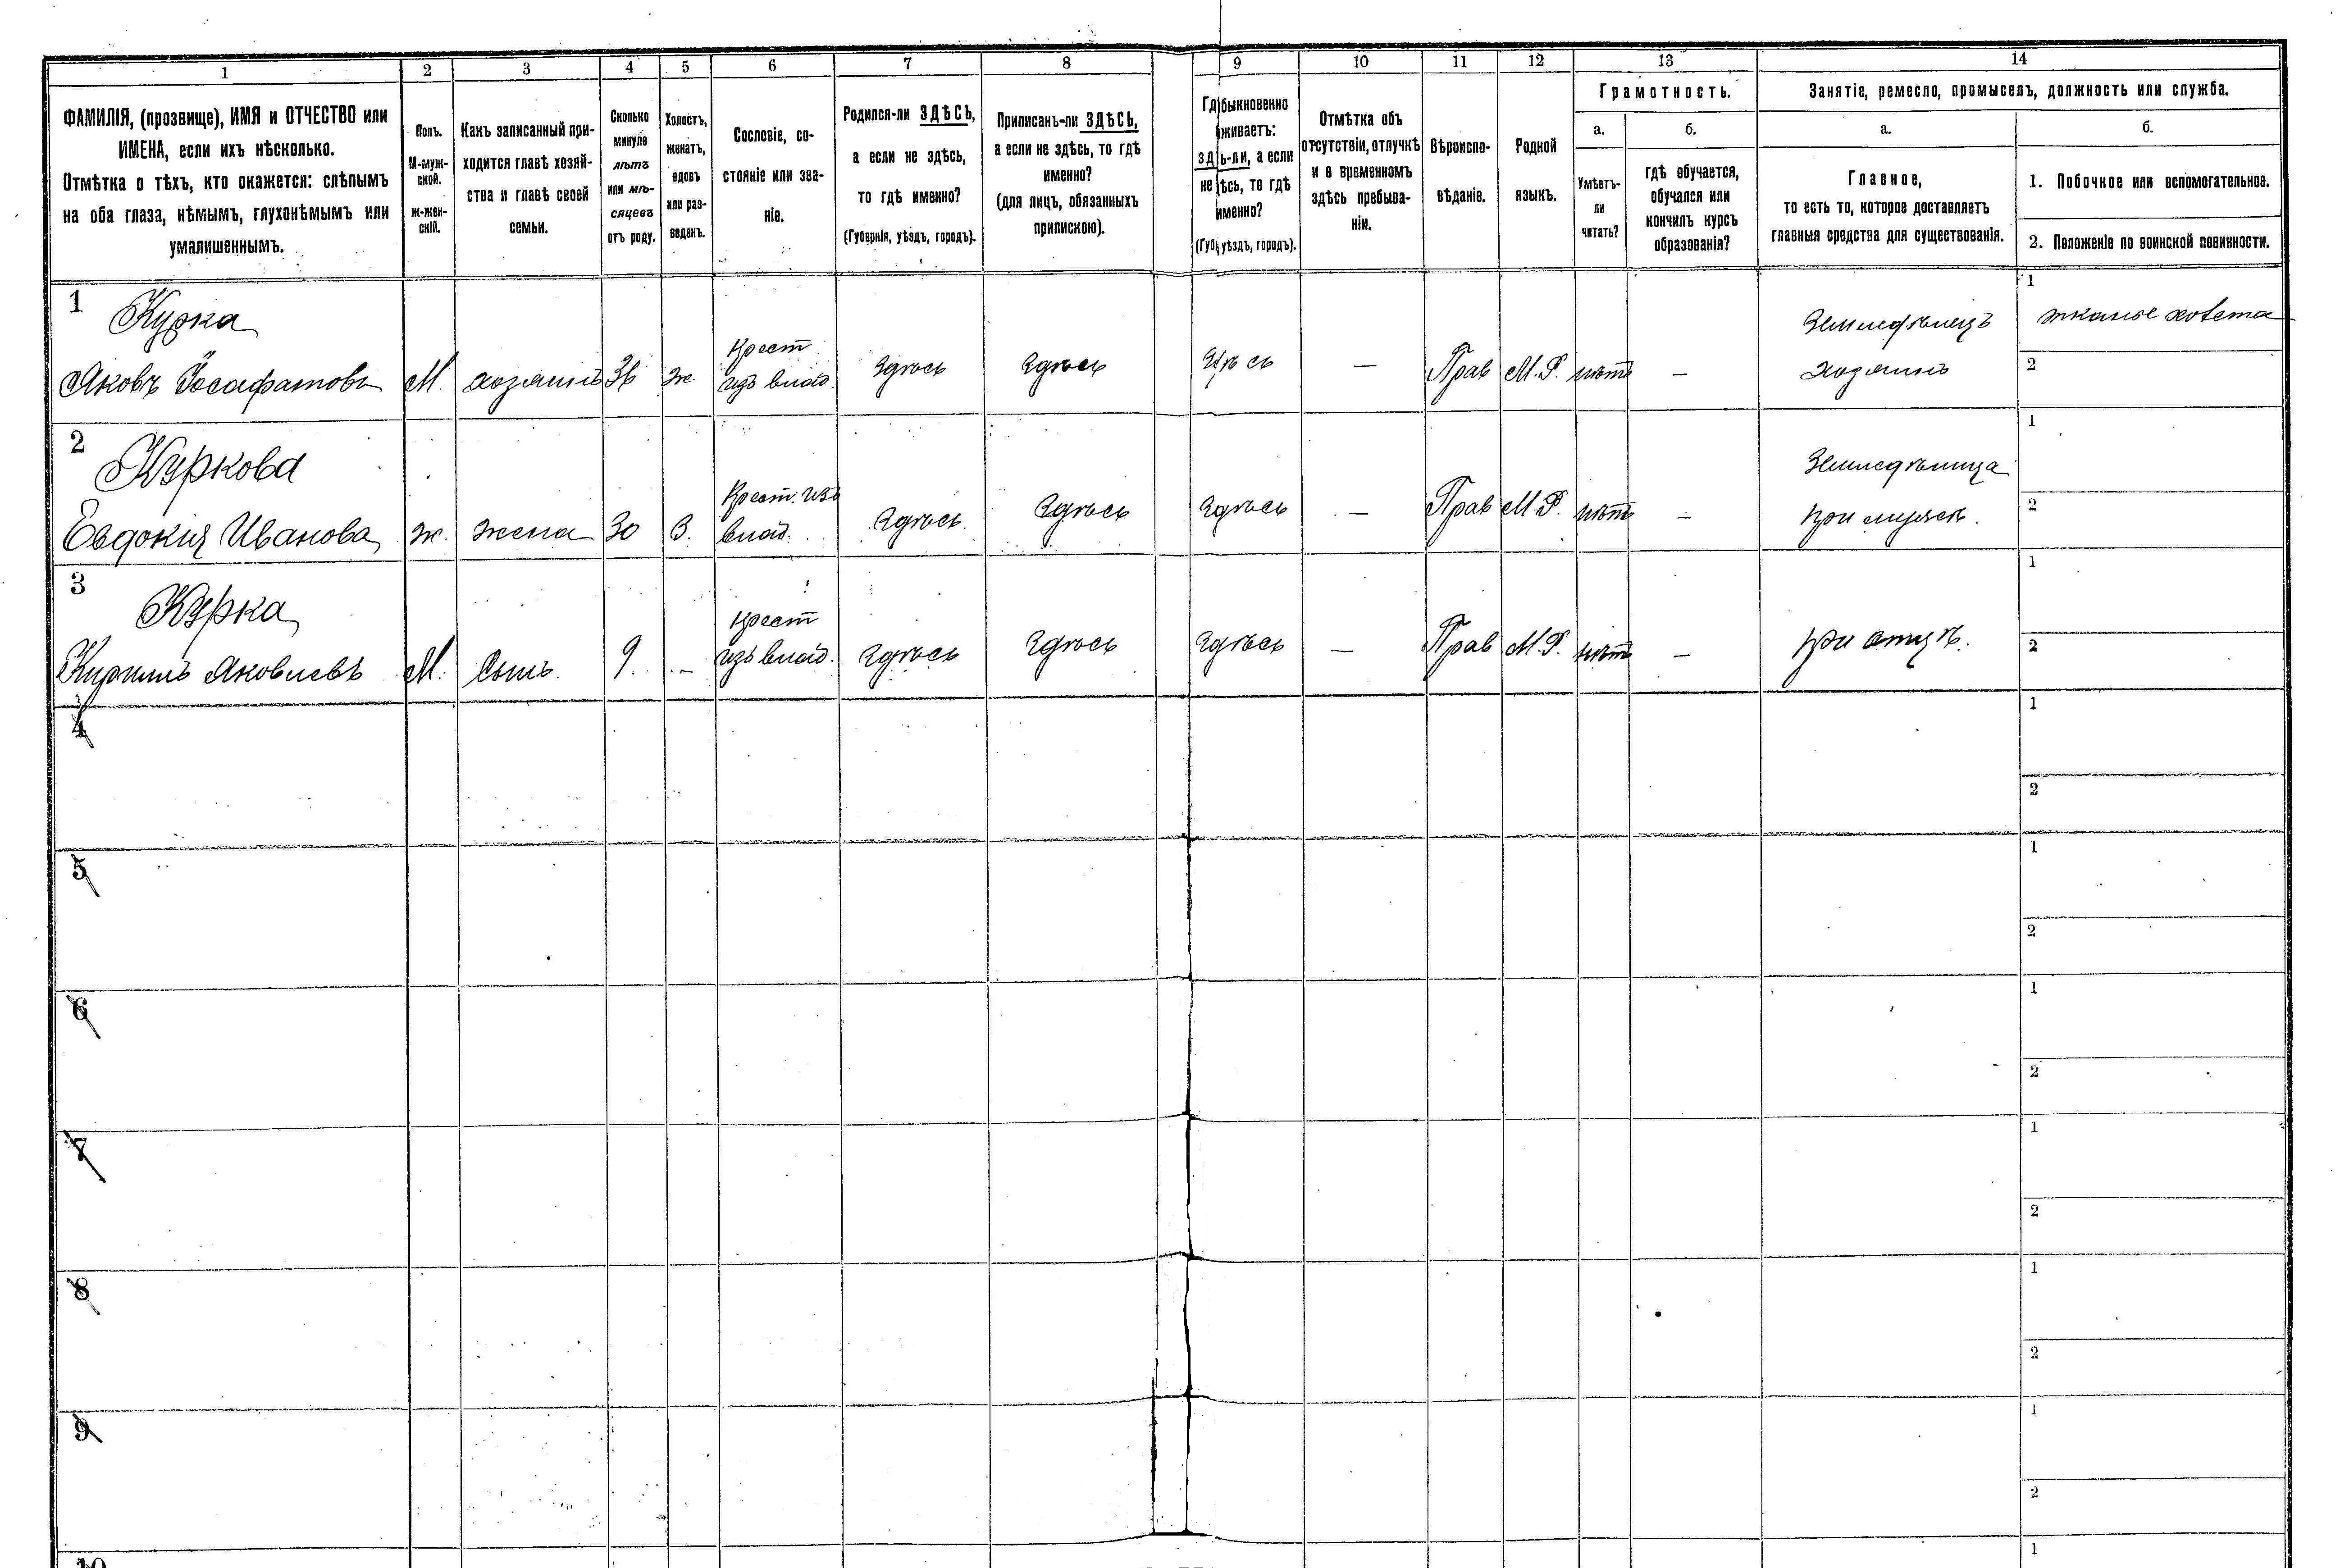 1 2 3 4 5 6 7 8 9 10 11 12 13 14
ФАМИЛІЯ, (прозвище), ИМЯ и ОТЧЕСТВО или
ИМЕНА, если ихъ нѣсколько.
Отмѣтка о тѣхъ, кто окажется: слѣпымъ
на оба глаза, нѣмымъ, глухонѣмымъ или
умалишеннымъ.
Полъ.
М-муж-
ской.
ж-жен-
скій.
Какъ записанный при-
ходится главѣ хозяй-
ства и главѣ своей
семьи.
Сколько
минуло
лѣтъ
или мѣ-
сяцевъ
отъ роду.
Холостъ,
женатъ,
вдовъ
или раз-
веденъ.
Сословіе, со-
стояніе или зва-
ніе.
Родился-ли ЗДѢСЬ,
а если не здѣсь,
то гдѣ именно?
(Губернія, уѣздъ, городъ).
Приписанъ-ли ЗДѢСЬ,
а если не здѣсь, то гдѣ
именно?
(для лицъ, обязанныхъ
припискою).
Гд быкновенно
живаетъ:
зд ь-ли, а если
не ѣсь, то гдѣ
именно?
(Губ уѣздъ, городъ).
Отмѣтка объ
отсутствіи, отлучкѣ
и о временномъ
здѣсь пребыва-
ніи.
Вѣроиспо-
вѣданіе.
Родной
языкъ.
Грамотность.
а.
Умѣетъ-
ли
читать?
б.
гдѣ обучается,
обучался или
кончилъ курсъ
образованія?
Занятіе, ремесло, промыселъ, должность или служба.
а.
Главное,
то есть то, которое доставляетъ
главныя средства для существованія.
б.
1. Побочное или вспомогательное.
2. Положеніе по воинской повинности.
1
Курка
Яковъ Іосафатовъ
М.
хозяинъ
36
ж.
Крест
изъ влад.
Здѣсь
Здѣсь
Здѣсь
—
Прав
М.Р.
нѣтъ
—
Земледѣлецъ
хозяинъ
1
тканье холста
2
2
Куркова
Евдокия Иванова
ж.
жена
30
З.
Крест. изъ
влад.
Здѣсь
Здѣсь
Здѣсь
—
Прав
М.Р.
нѣтъ
—
Земледѣлица
при мужѣ.
1
2
3
Курка
Кирилъ Яковлевъ
М.
Сынъ
9.
—
Крест
изъ влад.
Здѣсь
Здѣсь
Здѣсь
—
Прав
М.Р.
нѣтъ
—
при отцѣ.
1
2
4
1
2
5
1
2
6
1
2
7
1
2
8
1
2
9
1
2
10
1